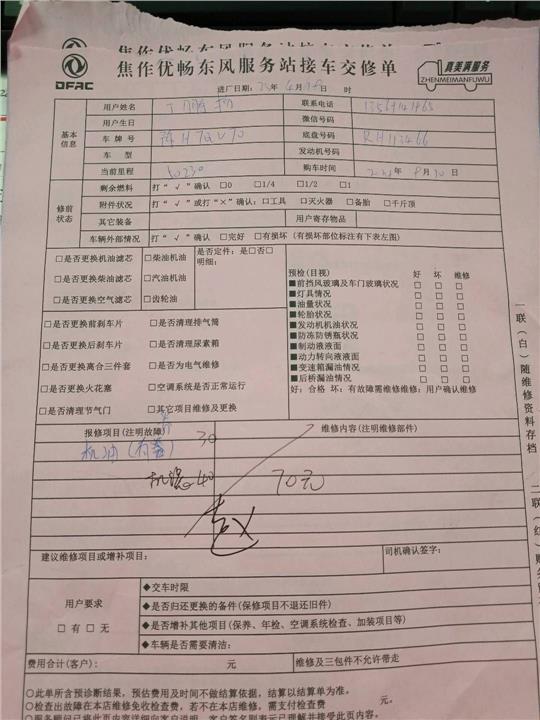 焦作优畅东风服务站接车交修单
DFAC
焦作优畅东风服务站接车交修单
真美满服务
ZHENMEIMANFUWU
进厂日期: 年 4月 日 时
基本信息
用户姓名
联系电话
用户生日
微信号码
车牌号
底盘号码 RH113466
车型
发动机号码
当前里程 50230
购车时间 年 月 日
修前状态
剩余燃料 打“√”确认 □0 □1/4 □1/2 □1
附件状况 打“√”或打“×”确认：□工具 □灭火器 □备胎 □千斤顶
其它装备 用户寄存物品
车辆外部情况 打“√”确认 □完好 □有损坏（有损坏部位标注有下表左图）
□是否更换机油滤芯 □柴油机油 是否定件：是□否□
明细：
□是否更换柴油滤芯 □汽油机油
□是否更换空气滤芯 □齿轮油
预检(目视) 好 坏 维修
■前挡风玻璃及车门玻璃状况 □ □ □
■灯具情况 □ □ □
■油量状况 □ □ □
■轮胎状况 □ □ □
■发动机机油状况 □ □ □
■防冻防锈瓶状况 □ □ □
■制动液液面 □ □ □
■动力转向液液面 □ □ □
■变速箱漏油情况 □ □ □
■后桥漏油情况 □ □ □
好：合格 坏：有故障需维修维修：用户确认维修
□是否更换前刹车片 □是否清理排气筒
□是否更换后刹车片 □是否清理尿素箱
□是否更换离合三件套 □是否为电气维修
□是否更换火花塞 □空调系统是否正常运行
□是否清理节气门 □其它项目维修及更换
报修项目(注明故障) 维修内容(注明维修部件)
机油 30
机滤 40 70元
建议维修项目或增补项目： 司机确认签字：
用户要求
□有 □无
◆交车时限
◆是否归还更换的备件(保修项目不退还旧件)
◆是否增补其他项目(保养、年检、空调系统检查、加装项目等)
◆车辆是否需要清洁：
费用合计(客户)： 元 维修及三包件不允许带走
○此单所含预诊断结果，预估费用及时间不做结算依据，结算以结算单为准。
○检查出故障在本店维修免收检查费，若不在本店维修，需支付检查费 元。
○服务顾问已将此页内容详细向客户说明，客户签名则表示已理解并接受此页内容。
一联（白）随维修资料存档
二联（红）